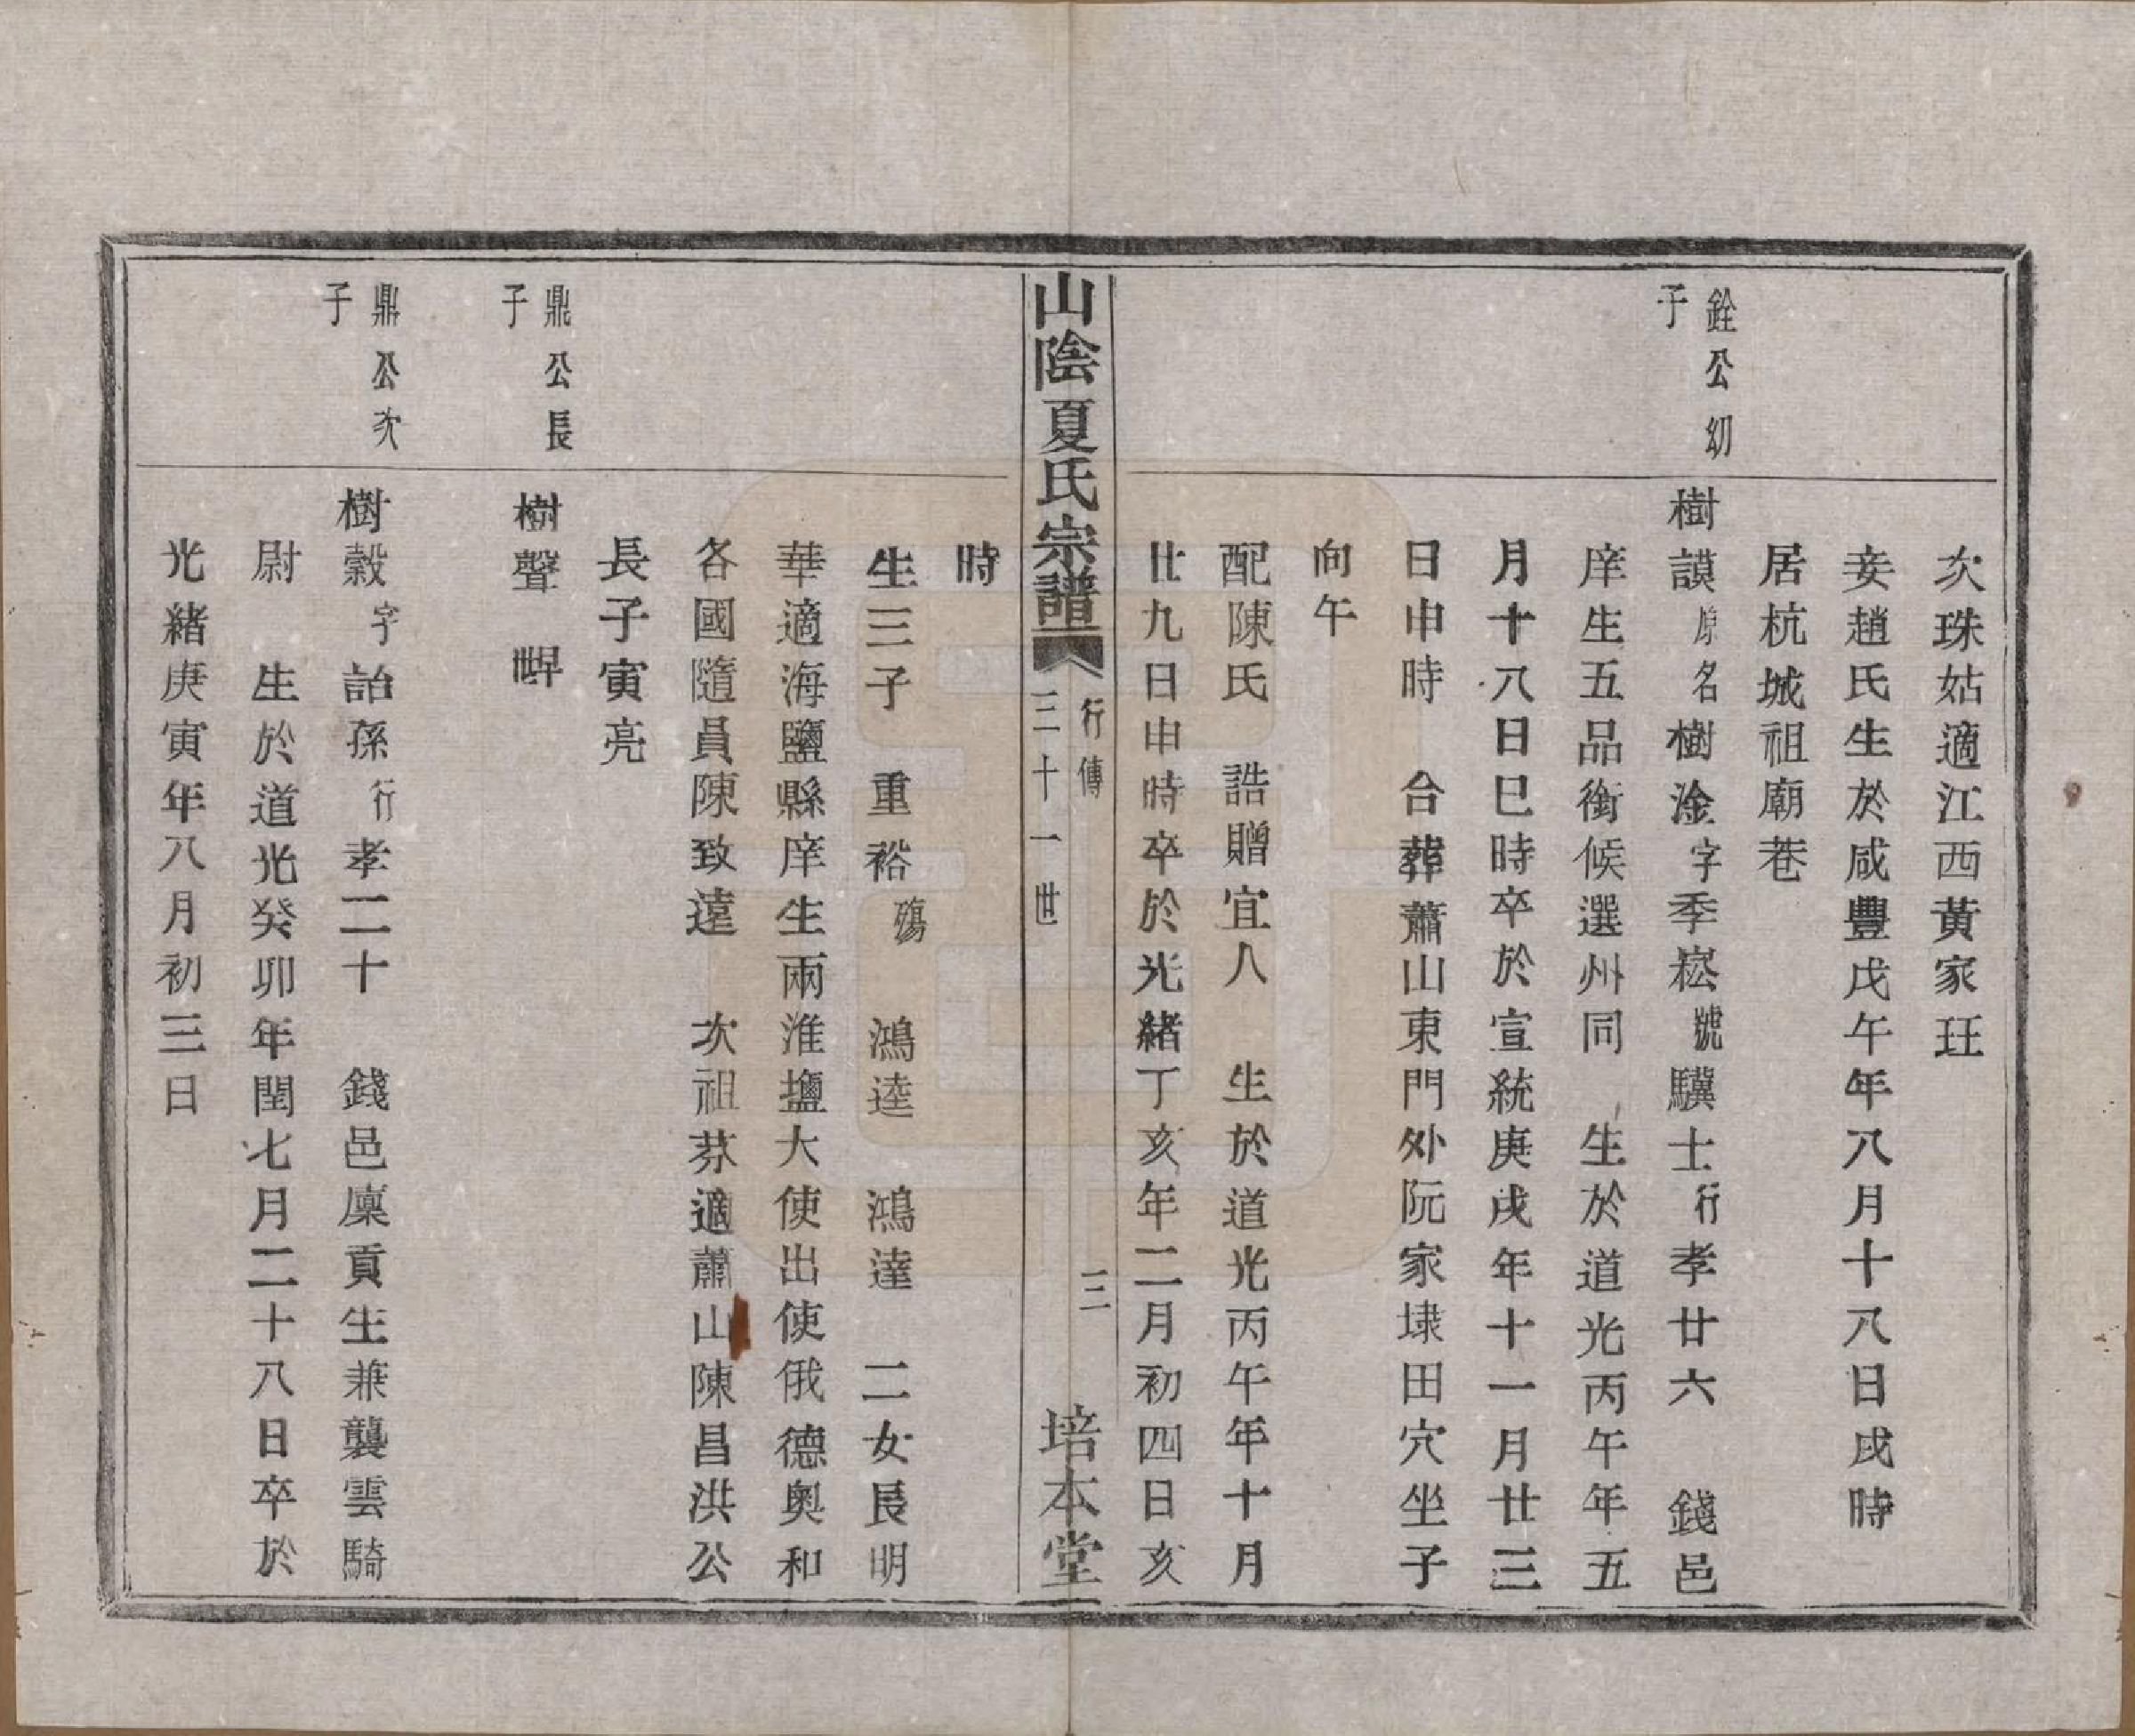 次珠姑適江西黃家玨
妾趙氏生於咸豐戊午年八月十八日戌時
居杭城祖廟巷
銓公幼子
樹謨原名樹淦字季崧號驥士行孝廿六　錢邑
庠生五品銜候選州同　生於道光丙午年五
月十八日巳時卒於宣統庚戌年十一月廿三
日申時　合葬蕭山東門外阮家埭田穴坐子
向午
配陳氏　誥贈宜人　生於道光丙午年十月
廿九日申時卒於光緒丁亥年二月初四日亥
山陰夏氏宗譜
行傳
三十一世
三
培本堂
時
生三子　重裕殤　鴻逵　鴻達　二女長明
華適海鹽縣庠生兩淮鹽大使出使俄德奧和
各國隨員陳致遠　次祖芬適蕭山陳昌洪公
長子寅亮
鼎公長子
樹聲　嘒
鼎公次子
樹穀字詒孫行孝二十　錢邑廩貢生兼襲雲騎
尉　生於道光癸卯年閏七月二十八日卒於
光緒庚寅年八月初三日